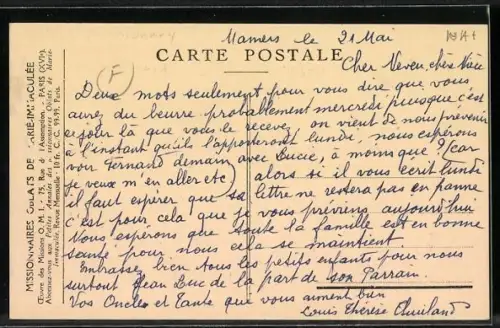 MISSIONNAIRES OBLATS DE MARIE-IMMACULÉE
Œuvre des Missions O. M. I., 75, Rue de l'Assomption - PARIS (XVIe)
Abonnez-vous aux Petites Annales des Missionnaires Oblats de Marie-
Immaculée, Revue Mensuelle : 18 fr. C. C. 99-94, Paris.
Mamers le 21 Mai
CARTE POSTALE
F
Cher Neveu, chère Nièce
Deux mots seulement pour vous dire que vous
aurez du beurre probablement mercredi puisque c'est
ce jour là que vous le recevez on vient de nous prévenir
à l'instant qu'ils l'apporteront lundi, nous espérons
voir Fernand demain avec Lucie, à moins que ? (car
je veux m'en aller etc) alors si il vous écrit lundi
il faut espérer que sa lettre ne restera pas en panne
c'est pour cela que je vous préviens aujourd'hui
Nous espérons que toute la famille est en bonne
santé pour nous cela se maintient
Embrassez bien tous les petits enfants pour nous
surtout Jean Luc de la part de son Parrain.
Vos Oncles et Tante qui vous aiment bien
Louis Thérèse